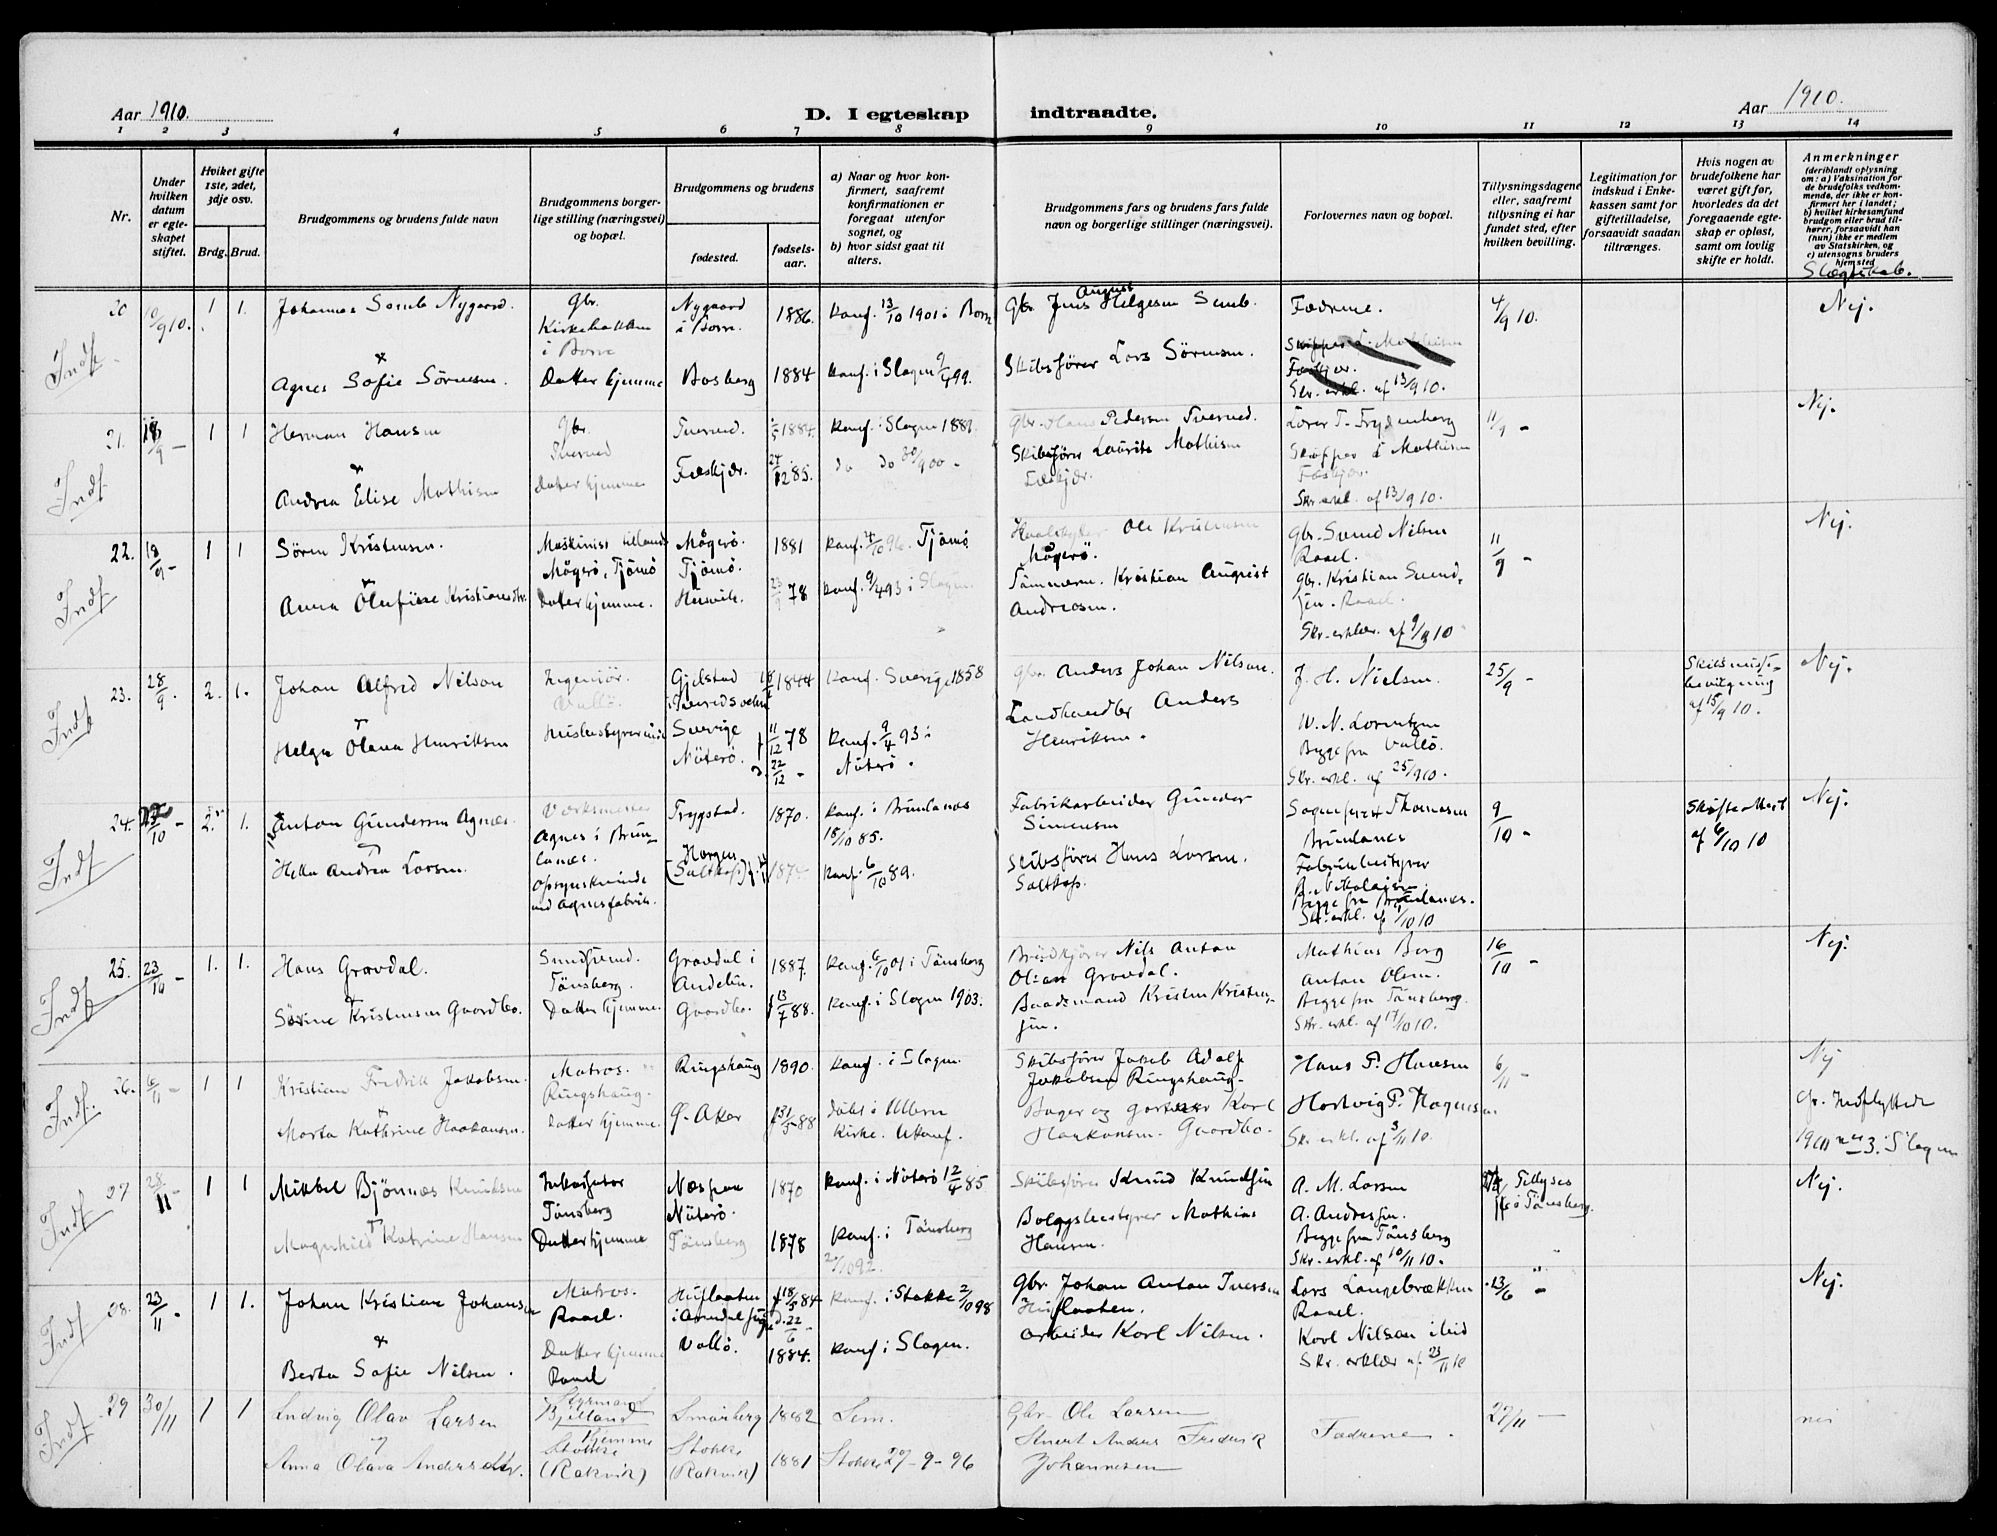 Aar 1910.
D. I egteskap indtraadte.
Aar 1910.
1 2 3 4 5 6 7 8 9 10 11 12 13 14
Nr.
Under hvilken datum er egteskapet stiftet.
Hviket gifte 1ste, 2det, 3dje osv.
Brdg. Brud.
Brudgommens og brudens fulde navn
Brudgommens borgerlige stilling (næringsvei) og bopæl.
Brudgommens og brudens
fødested.
fødselsaar.
a) Naar og hvor konfirmert, saafremt konfirmationen er foregaat utenfor sognet, og
b) hvor sidst gaat til alters.
Brudgommens fars og brudens fars fulde navn og borgerlige stillinger (næringsvei).
Forlovernes navn og bopæl.
Tillysningsdagene eller, saafremt tillysning ei har fundet sted, efter hvilken bevilling.
Legitimation for indskud i Enkekassen samt for giftetilladelse, forsaavidt saadan tiltrænges.
Hvis nogen av brudefolkene har været gift før, hvorledes da det foregaaende egteskap er opløst, samt om lovlig skifte er holdt.
Anmerkninger
(deriblandt oplysning om: a) Vaksination for de brudefolks vedkommende, der ikke er konfirmert her i landet;
b) hvilket kirkesamfund brudgom eller brud tilhører, forsaavidt han (hun) ikke er medlem av Statskirken, og
c) utensogns bruders hjemsted
Slægtskab.
Indf.
20 10/9 10. 1 1. Johannes Semb Nygaard. Gbr. Kirkebakken i Borre Nygaard i Borre. 1886. Konf. 13/10 1901 i Borre
Gbr. Jens August Helgesen Semb. Fædrene. 4/9 10. Nej.
&
Agnes Sofie Sörensen. Datter hjemme Basberg 1884 Konf. i Slagen 9/4 99.
Skibsförer Lars Sörensen. Skr. erkl. af 13/9 10.
Indf.
21. 18/9 - 1 1 Herman Hansen Gbr. Tverved Tverved. 1884. Konf. i Slagen 1881.
Gbr. Hans Pedersen Tverved. Lærer T. Frydenberg 11/9 - Nej.
&
Andrea Elise Mathisen Datter hjemme Fæskjær. 24/12 85. do do 30/9 00 -
Skibsförer Laurits Mathisen Fæskjær. Skipper L Mathisen Fæskjær.
Skr. erkl. af 13/9 10.
Indf.
22. 18/9 - 1 1 Sören Kristensen. Maskinist Mågerö, Tjömö Mågerö. Tjömö. 1881 Konf. 4/10 96. Tjömö
Ole Kristensen Mågerö. Gbr. Svend Nilsen Raael. 11/9 - Nej.
&
Anna Olufine Kristiansdtr. Datter hjemme. Husvik. 23/9 78 Konf. 9/4 93 i Slagen.
Tömmerm. Kristian August Andreasen. Gbr. Kristian Svendsen. Raael.
Skr. erklær. af 9/9 10
Indf.
23. 28/9. 2. 1. Johan Alfred Nilson Ingeniör. Vallö. Gjelstad Sverige 1844 Konf. Sverige 1858
Gbr. Anders Johan Nilsson. J. H. Nielsen. 25/9 - Skilsmissebevilgning af 15/9 10. Nej.
&
Helga Olava Henriksen Husbestyrerinde Nöterö. f. 11/12 78 d. 22/12 - Konf. 9/4 93 i Nöterö.
Landhandler Anders Henriksen. W. N. Lorentzen
Begge fra Vallö.
Skr. erkl. af 25/9 10.
Indf.
24. /10 - 2. 1. Anton Gundersen Agnæs. Værksmester Agnes i Brunlanes. Trygstad. 1870. Konf. i Brunlanes 18/10 85.
Fabrikarbeider Gunder Simensen Sogneprest Thomesen Brunlanes 9/10 - Skifte-Attest af 6/10 10 Nej.
&
Helle Andrea Larsen. Opsynskvinde ved Agnesfabrik. Horgen (Saltkop) Konf. 6/10 89.
Skibsförer Hans Larsen. Saltkop. Fabrikbestyrer A. Nikolaisen.
Begge fra Brunlanes.
Skr. erkl. af /10 10
Indf.
25. 23/10 - 1. 1. Hans Gravdal. Tönsberg. Gravdal i Andebu. 1887. Konf. 6/10 01 i Tönsberg
Nils Anton Olsen Gravdal. Mathias Berg 16/10 - Nej.
&
Sörine Kristensen Gaardbo. Datter hjemme. Gaardbo. f 13/7 88. Konf. i Slagen 1903.
Baadsmand Kristen Kristensen. Anton Olsen.
Begge fra Tönsberg.
Skr. erkl. af 17/10 10.
Indf.
26. 6/11 - 1 1 Kristian Fredrik Jakobsen. Matros. Ringshaug. Ringshaug 1890. Konf. i Slagen.
Skibsförer Jakob Adolf Jakobsen Ringshaug. Hans P. Hansen 6/11 - Nej
&
Marta Kathrine Haakonsen. Datter hjemme. Ö. Aker f 31/5 88 döbt i Ullern Kirke. Ukonf.
Bager og gartner Karl Haakonsen. Gaardbo. Hartvig P. Hagensen.
Skr. erkl. af 3/11 10.
Gr. Indflyttede 1910 nr. 3. i Slagen
Indf.
27 28/11 - 1 1 Mikkel Bjönnæs Knudsen Inkassator Tönsberg Næspen Nöterö. 1870 Konf. i Nöterö 12/4 85
Skibsförer Knud Knudsen A. M. Larsen Tillyses i Tönsberg. Nej.
&
Magnhild Katrine Hansen Datter hjemme Tönsberg 1878 Konf. i Tönsberg 2/10 92.
Bolagsbestyrer Mathias Hansen. A. Andresen.
Begge fra Tönsberg
Skr. erkl. af 10/11 10.
Indf
28. 23/11 - 1 1. Johan Kristian Johansen Matros. Raael. Huflaaten f. 18/5 84 d. 22/6 - Konf. i Stokke 2/10 98
Gbr. Johan Anton Iversen Huflaaten. Lars Langebrækken Raael. 13/6 - Nej.
&
Berta Sofie Nilsen. Datter hjemme Raael Vallö. 1884. Konf. i Slagen.
Arbeider Karl Nilsen. Karl Nilsen ibid
Skr. erklær af 23/11 10
Indf.
29 30/11 1 1 Ludvig Olav Larsen Styrmand Bjelland Smörberg 1882 Sem.
Gbr. Ole Larsen Fædrene. 27/11 - nei
og
Anna Olava Andersdtr. hjemme Stokke (Rakvik) Stokke (Rakvik) 1881 Stokke 27-9-96
Anders Fredrik Johannesen